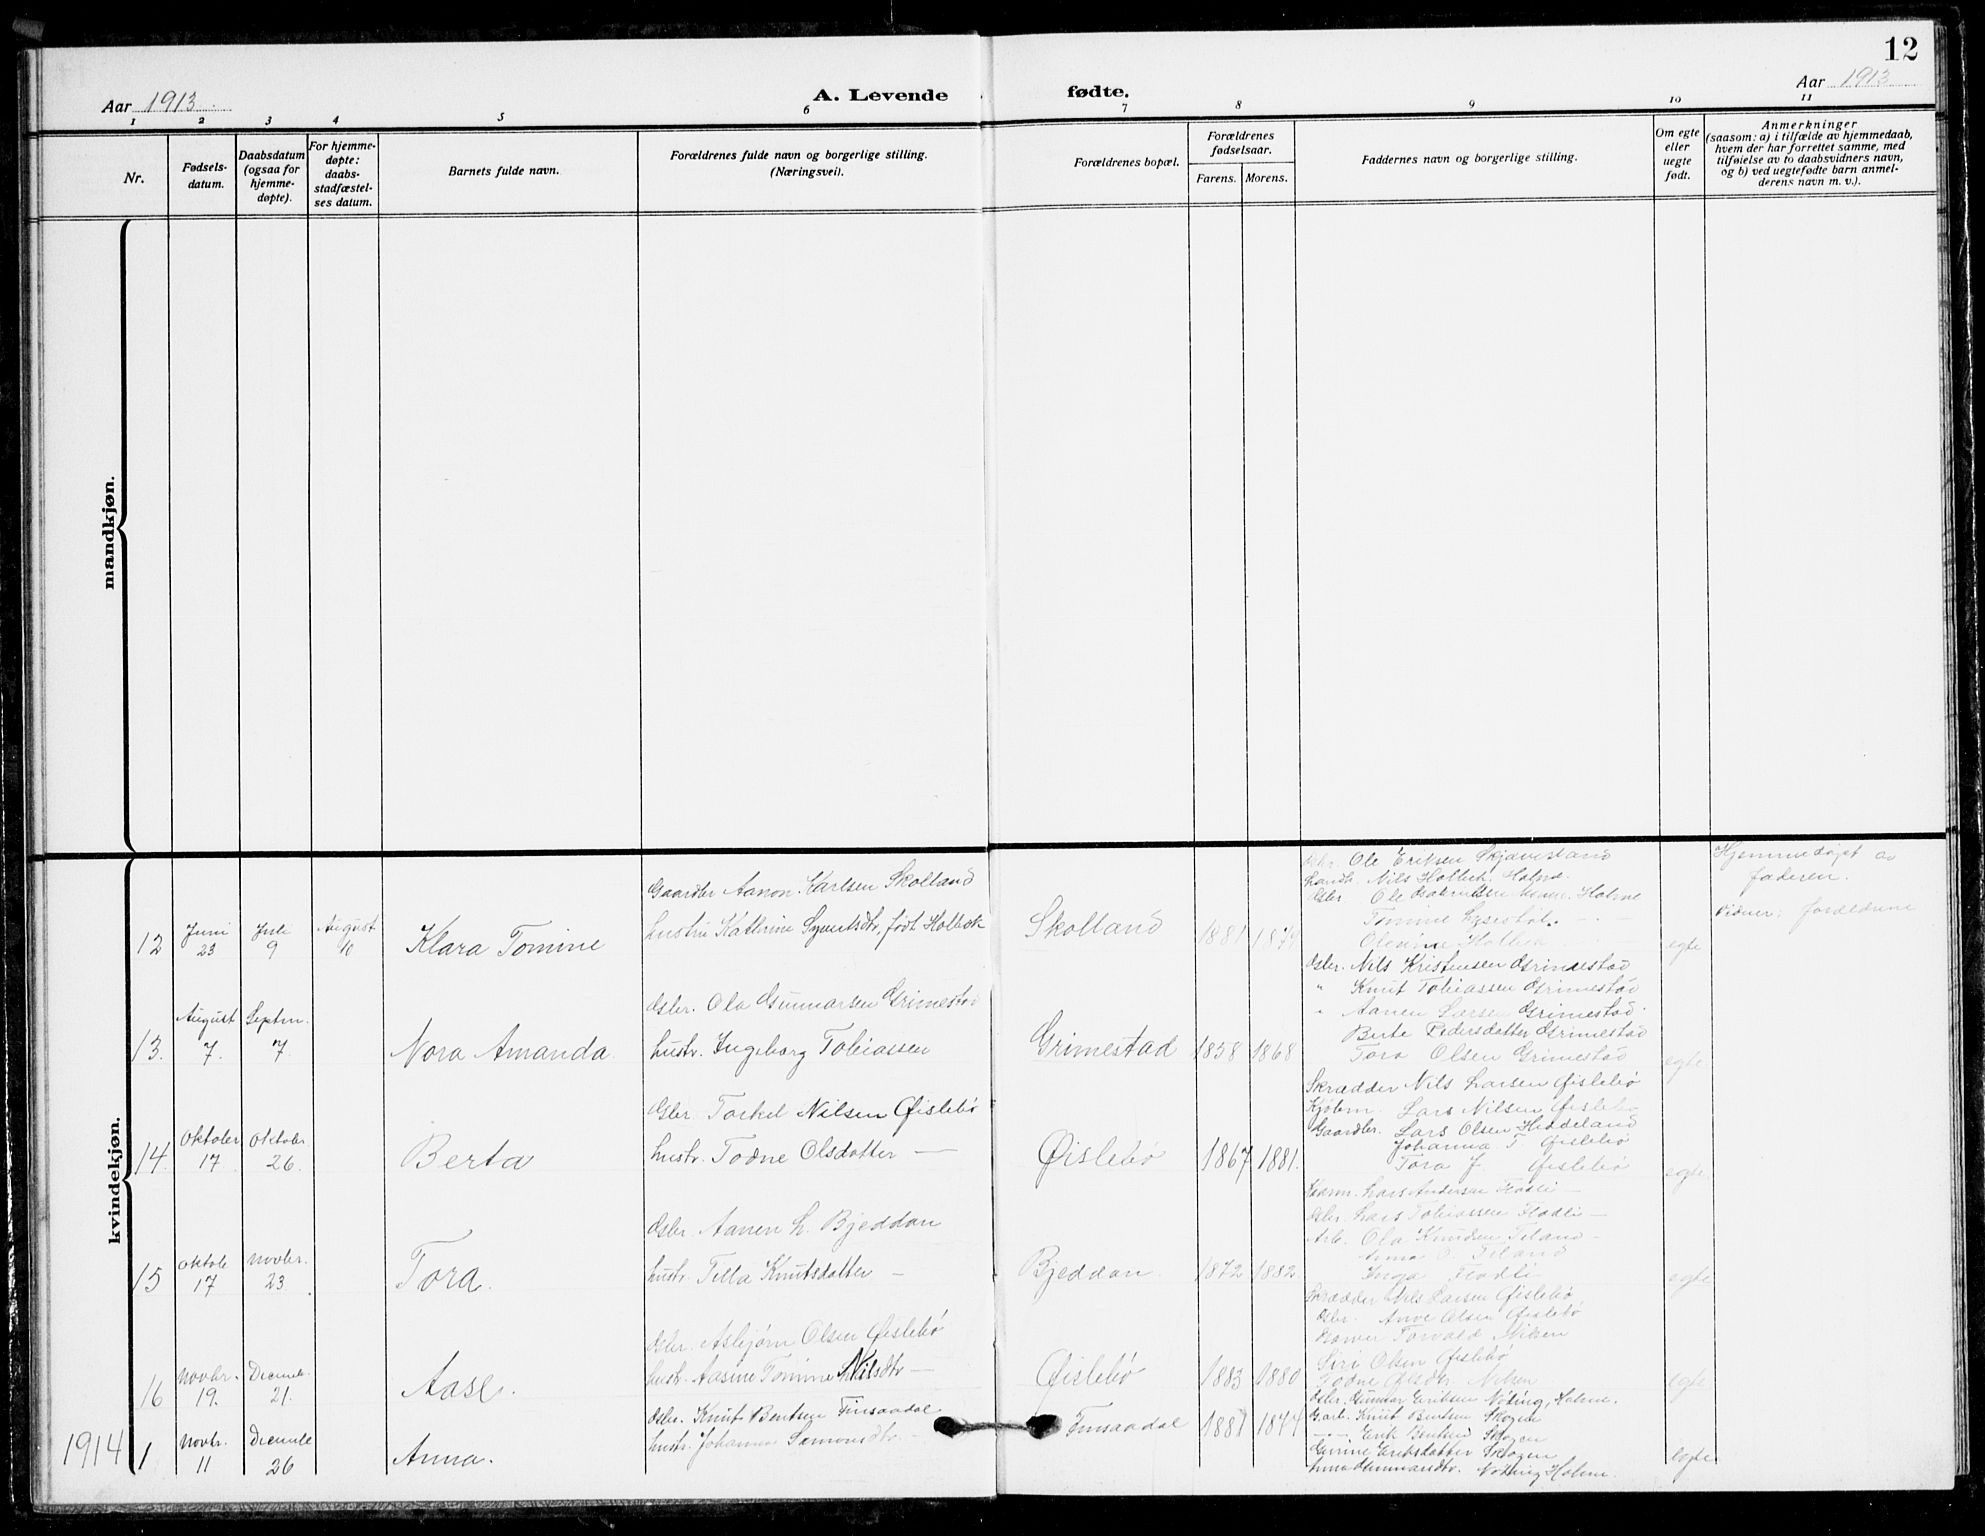 12
Aar 1913
A. Levende fødte.
Aar 1913
1 2 3 4 5 6 7 8 9 10 11
Nr.
Fødsels-
datum.
Daabsdatum
(ogsaa for
hjemme-
døpte).
For hjemme-
døpte:
daabs-
stadfæstel-
ses datum.
Barnets fulde navn.
Forældrenes fulde navn og borgerlige stilling.
(Næringsvei).
Forældrenes bopæl.
Forældrenes
fødselsaar.
Farens. Morens.
Faddernes navn og borgerlige stilling.
Om egte
eller
uegte
født.
Anmerkninger
(saasom: a) i tilfælde av hjemmedaab,
hvem der har forrettet samme, med
tilføielse av to daabsvidners navn,
og b) ved uegtefødte barn anmel-
derens navn m. v.).
mandkjøn.
kvindekjøn.
12
Juni
23
Juli
9
August
10
Klara Tomine
Gaardbr Aanon Karlsen Skolland
hustru Kathrine Syvertsdtr, født Holbek
Skolland
1881
Ole Eriksen Skjævesland
Nils Holbek. Holme
Ole Holme
Tomine
Olevine Holbek
egte
Hjemmedøpt av
faderen.
Vidner: forældrene
13.
August
7.
Septm.
7.
Nora Amanda.
Gsbr. Ola Gunnarsen Grimestad
hustr. Ingeborg Tobiassen
Grimestad
1858
1868
Gsbr. Nils Kristensen Grimestad
" Knut Tobiassen Grimestad
" Aanen Larsen Grimestad.
Berte Pedersdatter Grimestad
Tora Olsen Grimestad
egte
14.
Oktober
17.
Oktober
26.
Berta
Gsbr. Torkel Nilsen Øislebö
hustr. Todne Olsdatter —
Øislebö
1867
1881.
Skrædder Nils Larsen Øislebö
Kjöbm. Lars Nilsen Øislebö
Gaardbr. Lars Olsen Heddeland
Johanna T. Øislebö
Tora J. Øislebö
egte
15
Oktob
17
Novbr.
23.
Tora.
Gsbr. Aanen L. Bjeddan
hustr. Tella Knutsdatter —
Bjeddan.
1872
1882.
Lars Andersen Flodli —
Gsbr. Lars Tobiassen Flodli —
Arb. Ola Knudsen Tiland —
Anna O. Tiland
Inga Flodli
egte
16
Novbr.
19.
Decembr.
21.
Aase.
Gsbr. Asbjørn Olsen Øislebö
hustr. Aasine Tomine Nilsdtr —
Øislebö
1883
1880
Skrædder Nils Larsen Øislebö
Gsbr. Anve Olsen Øislebö
Torvald Nilsen
Siri Olsen Øislebö
Todne Nilsen
egte
1914
1
Novbr.
11
Decembe
26
Anna.
Gsbr. Knut Bentsen Finsaadal
hustr. Johanna —
Finsaadal
1881
1874
Gsbr. Gunnar Eriksen Nöding, Holme.
G.arb. Knut Bentsen Skogen
—"— Erik Bentsen Skogen
Eriksdatter Skogen
Nöding Holme.
egte